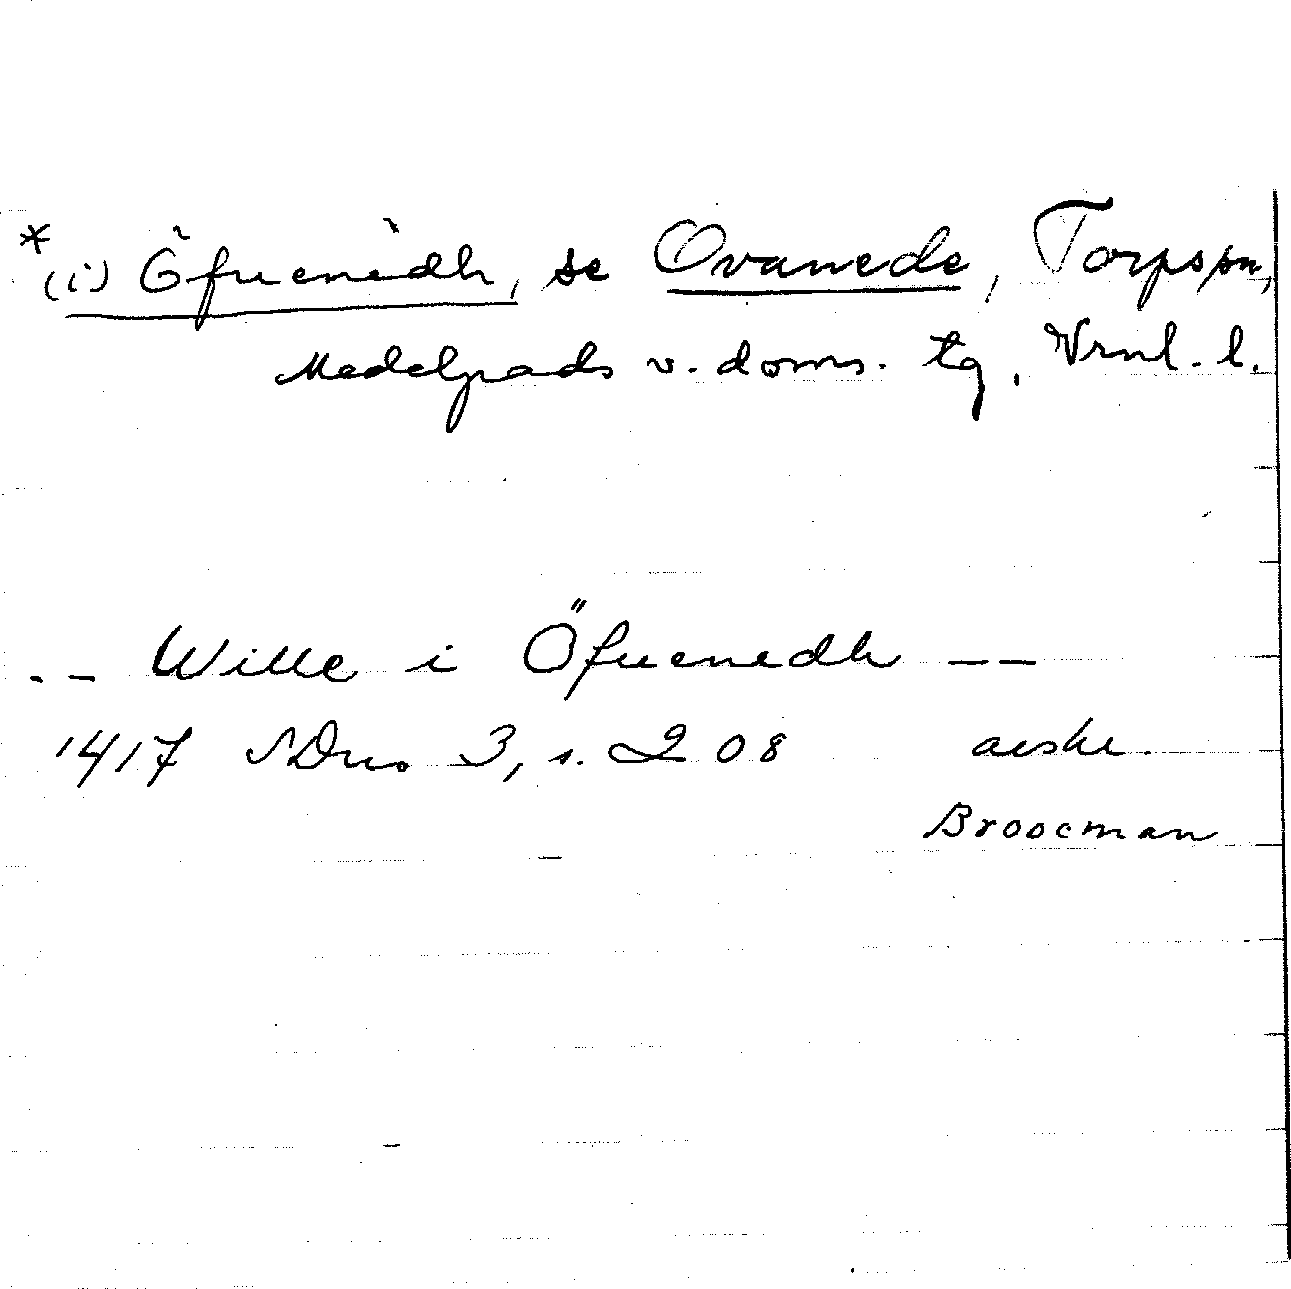 *(i) Öfuenèdh, se Ovanede, Torpspn,
Medelpads v. doms. tg, Vrnl. l.
-- Wille i Öfuenedh --
1417 SDns 3, s. 208 avskr.
Broocman